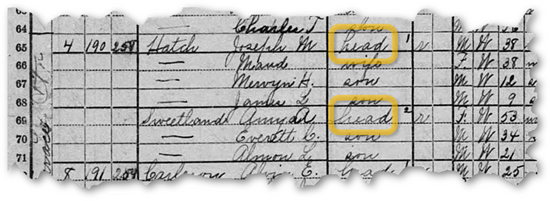 64 Charles T. son
65 4 190 257 Hatch Joseph M head 1 R M W 38
66 — Maude wife F W 38
67 — Mervyn H. son M W 12
68 — James L. son M W 9
69 Sweetland head 2 R F W 53
70 — Everett C. son M W 34
71 — Almon L. son M W 21
8 191 259 E. head M W 25